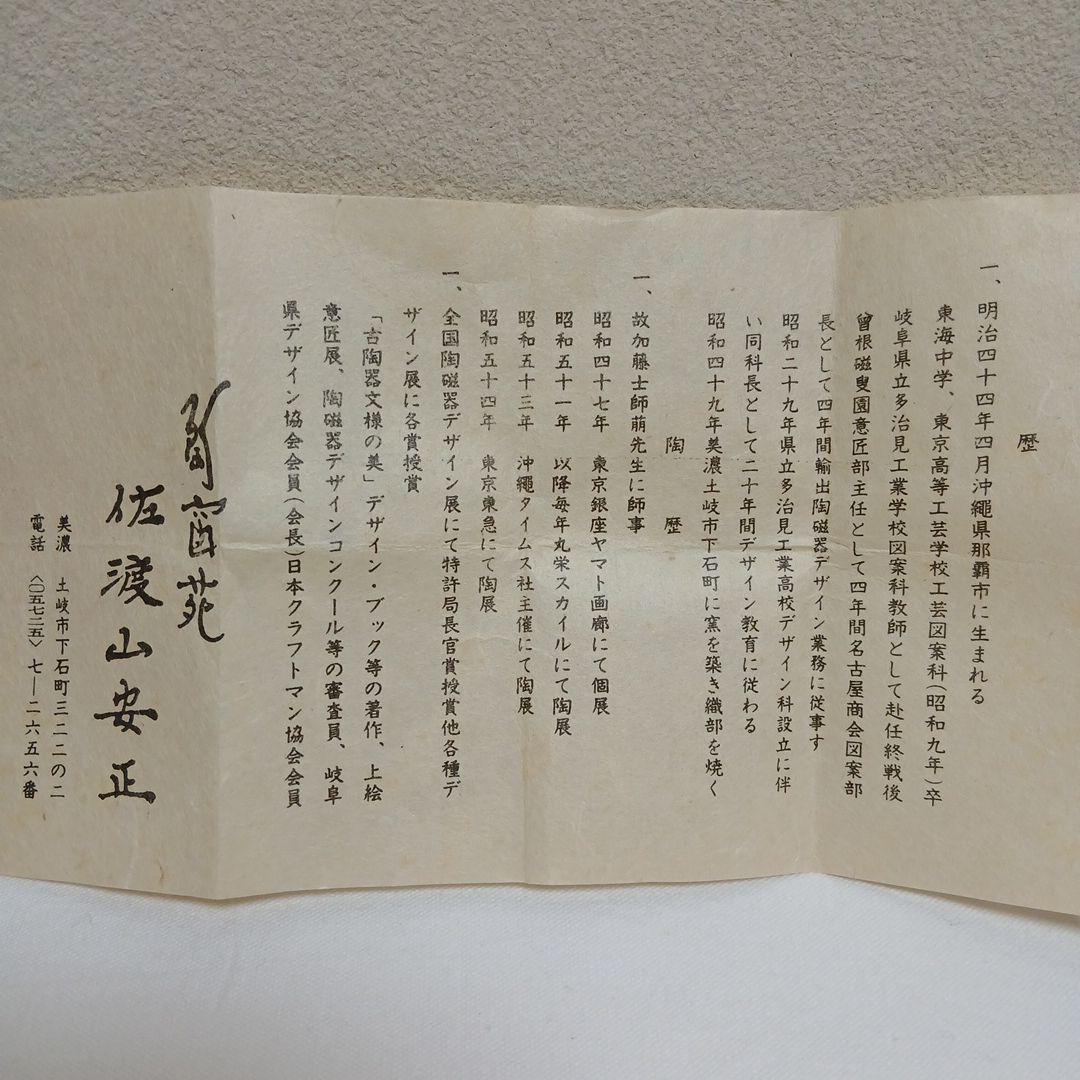 歴
一、明治四十四年四月沖縄県那覇市に生まれる
東海中学、東京高等工芸学校工芸図案科(昭和九年)卒
岐阜県立多治見工業学校図案科教師として赴任終戦後
曾根磁叟園意匠部主任として四年間名古屋商会図案部
長として四年間輸出陶磁器デザイン業務に従事す
昭和二十九年県立多治見工業高校デザイン科設立に伴
い同科長として二十年間デザイン教育に従わる
昭和四十九年美濃土岐市下石町に窯を築き織部を焼く
陶歴
一、故加藤土師萌先生に師事
昭和四十七年 東京銀座ヤマト画廊にて個展
昭和五十一年 以降毎年丸栄スカイルにて陶展
昭和五十三年 沖縄タイムス社主催にて陶展
昭和五十四年 東京東急にて陶展
一、全国陶磁器デザイン展にて特許局長官賞授賞他各種デ
ザイン展に各賞授賞
「古陶器文様の美」デザイン・ブック等の著作、上絵
意匠展、陶磁器デザインコンクール等の審査員、岐阜
県デザイン協会会員(会長)日本クラフトマン協会会員
苑
佐渡山安正
美濃 土岐市下石町三二二の二
電話〈〇五七二五〉七―二六五六番